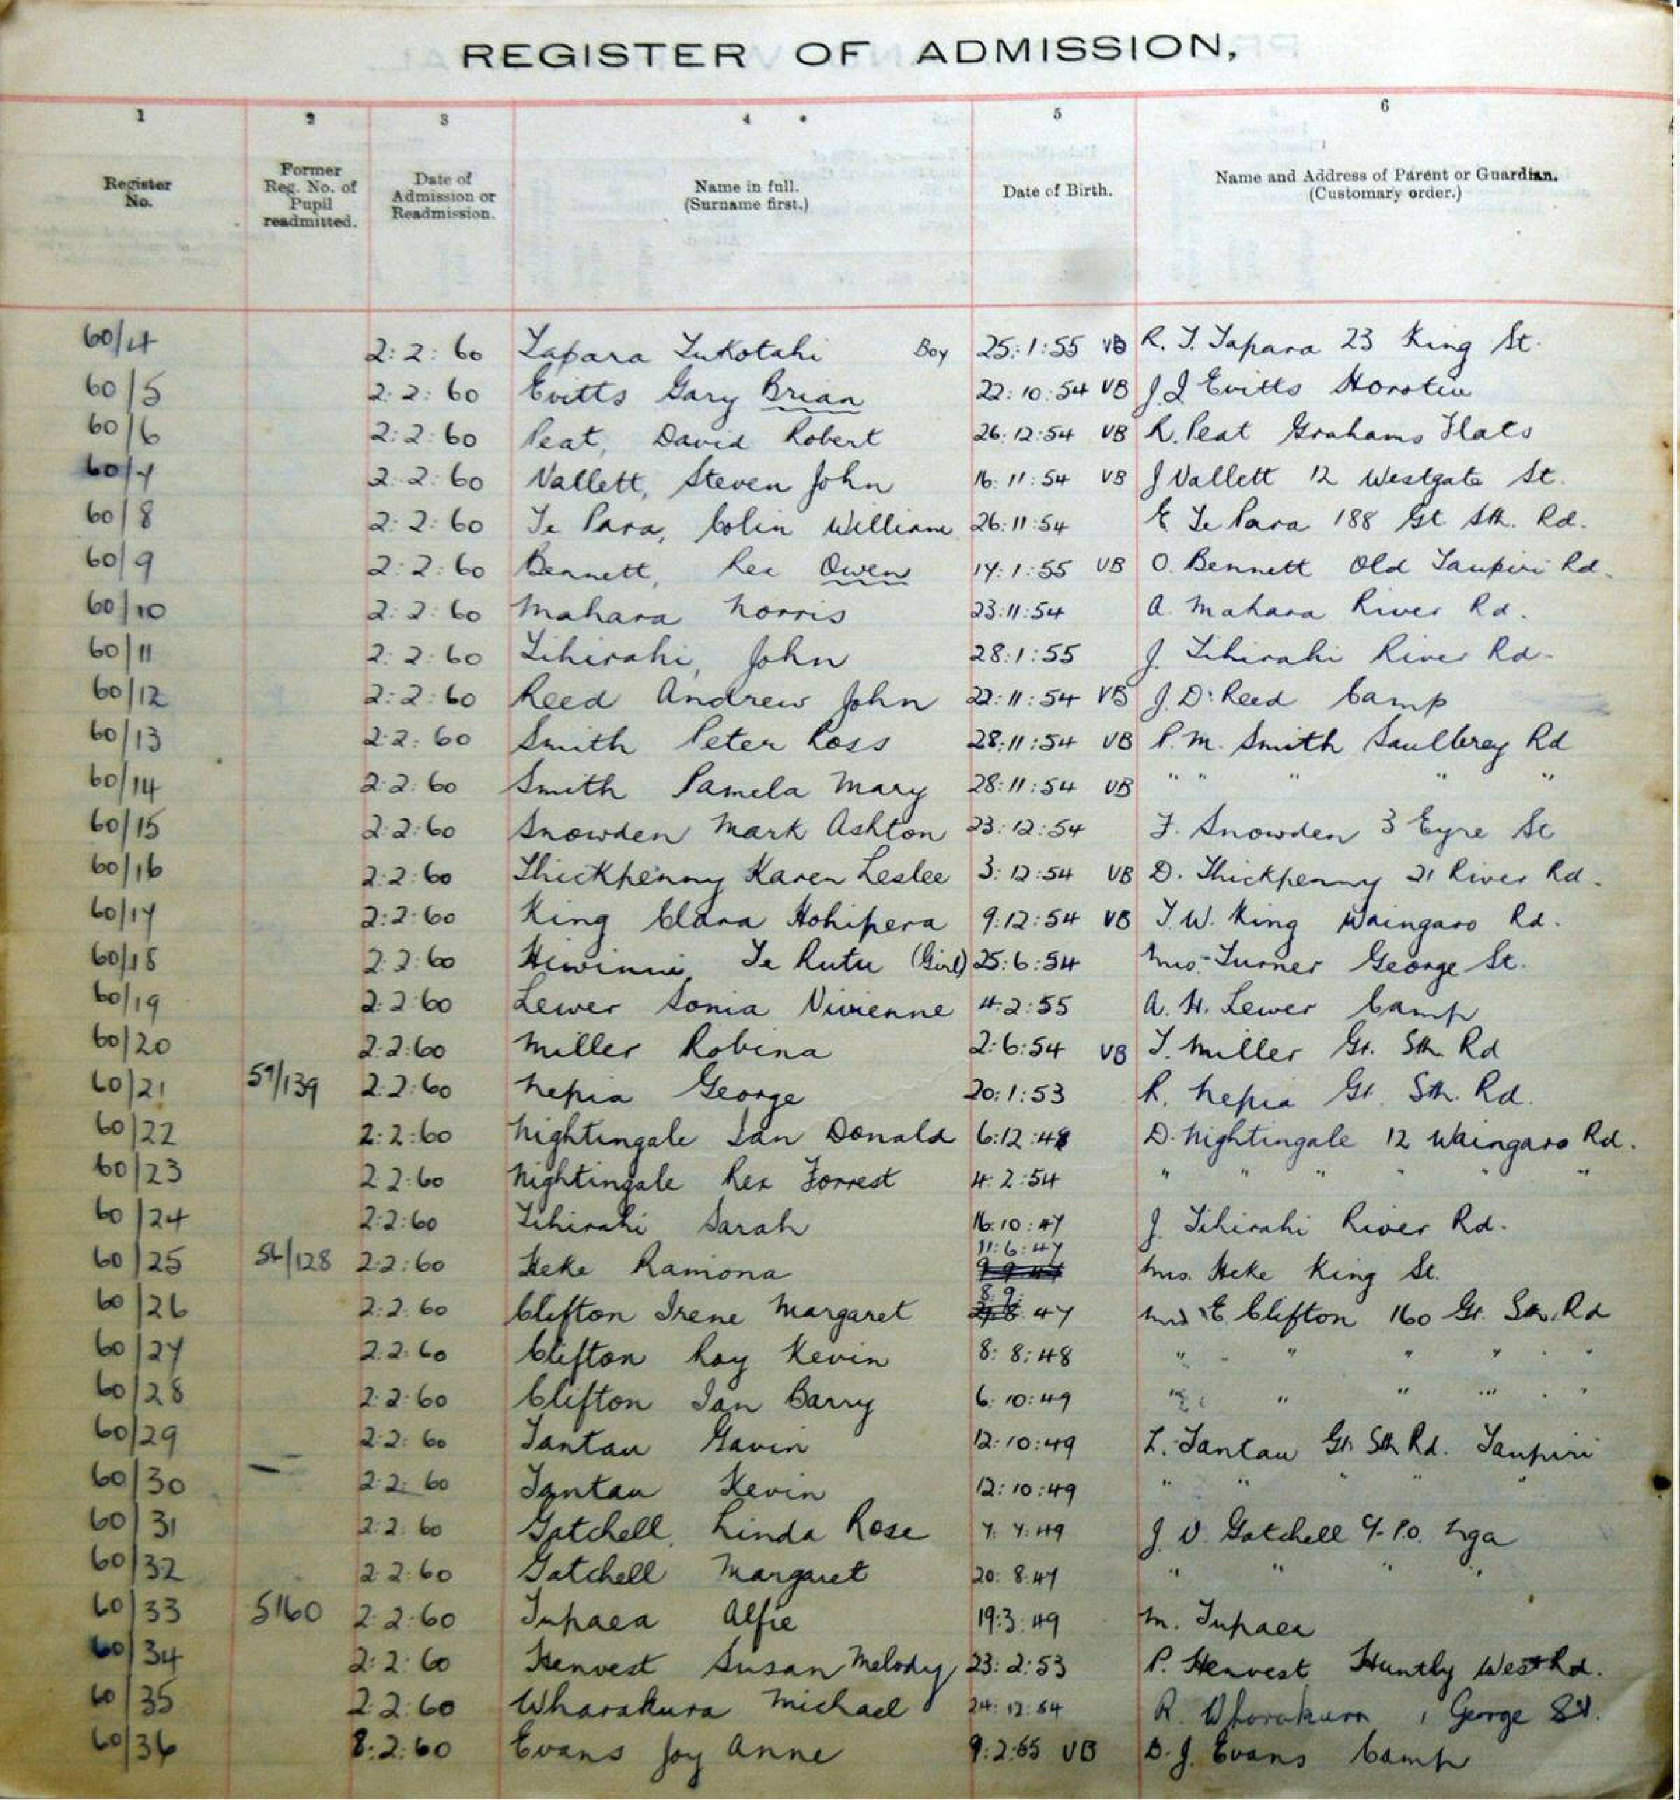 REGISTER OF ADMISSION,
1 2 3 4 5 6
Register No. Former Reg. No. of Pupil readmitted. Date of Admission or Readmission. Name in full. (Surname first.) Date of Birth. Name and Address of Parent or Guardian. (Customary order.)
60/4 2:2:60 Tapara Tukotahi Boy 25:1:55 VB R. T. Tapara 23 King St.
60/5 2:2:60 Evitts Gary Brian 22:10:54 VB J J Evitts Horotiu
60/6 2:2:60 Peat, David Robert 26:12:54 VB R. Peat Grahams Flats
60/7 2:2:60 Vallett, Steven John 16:11:54 VB J Vallett 12 Westgate St.
60/8 2:2:60 Te Para, Colin William 26:11:54 E Te Para 188 Gt Sth. Rd.
60/9 2:2:60 Bennett, Rex Owen 17:1:55 VB O. Bennett Old Taupiri Rd.
60/10 2:2:60 Mahara Norris 23:11:54 A. Mahara River Rd.
60/11 2:2:60 Tihirahi, John 28:1:55 J. Tihirahi River Rd.
60/12 2:2:60 Reed Andrew John 22:11:54 VB J. D. Reed Camp
60/13 2:2:60 Smith Peter Ross 28:11:54 VB P. M. Smith Saulbrey Rd
60/14 2:2:60 Smith Pamela Mary 28:11:54 VB " " " " "
60/15 2:2:60 Snowden Mark Ashton 23:12:54 F. Snowden 3 Eyre St
60/16 2:2:60 Thickpenny Karen Leslee 3:12:54 VB D. Thickpenny 21 River Rd.
60/17 2:2:60 King Clara Hohipera 9:12:54 VB T. W. King Waingaro Rd.
60/18 2:2:60 Hiwinui Te Rutu (Girl) 25:6:54 Mrs. Turner George St.
60/19 2:2:60 Lewer Sonia Vivienne 4:2:55 A. H. Lewer Camp
60/20 2:2:60 Miller Robina 2:6:54 VB T. Miller Gt. Sth Rd
60/21 59/139 2:2:60 Nepia George 20:1:53 R. Nepia Gt. Sth. Rd.
60/22 2:2:60 Nightingale Ian Donald 6:12:48 D. Nightingale 12 Waingaro Rd.
60/23 2:2:60 Nightingale Rex Forrest 4:2:54 " " " " " "
60/24 2:2:60 Tihirahi Sarah 16:10:47 J. Tihirahi River Rd.
60/25 56/128 2:2:60 Heke Ramona 11:6:47 Mrs. Heke King St.
60/26 2:2:60 Clifton Irene Margaret 8:9:47 Mrs E. Clifton 160 Gt. Sth. Rd
60/27 2:2:60 Clifton Roy Kevin 8:8:48 " " " " "
60/28 2:2:60 Clifton Ian Barry 6:10:49 " " " " "
60/29 2:2:60 Tantau Gavin 12:10:49 L. Tantau Gt. Sth Rd. Taupiri
60/30 — 2:2:60 Tantau Kevin 12:10:49 " " " " "
60/31 2:2:60 Gatchell, Linda Rose 7:7:49 J. V. Gatchell C/- P.O. Nga
60/32 2:2:60 Gatchell Margaret 20:8:47 " " " "
60/33 5160 2:2:60 Tupaea Alfie 19:3:49 M. Tupaea
60/34 2:2:60 Henvest Susan Melody 23:2:53 P. Henvest Huntly West Rd.
60/35 2:2:60 Wharakura Michael 24:12:54 R. Wharakura 1 George St.
60/36 8:2:60 Evans Joy Anne 9:2:55 VB D. J. Evans Camp